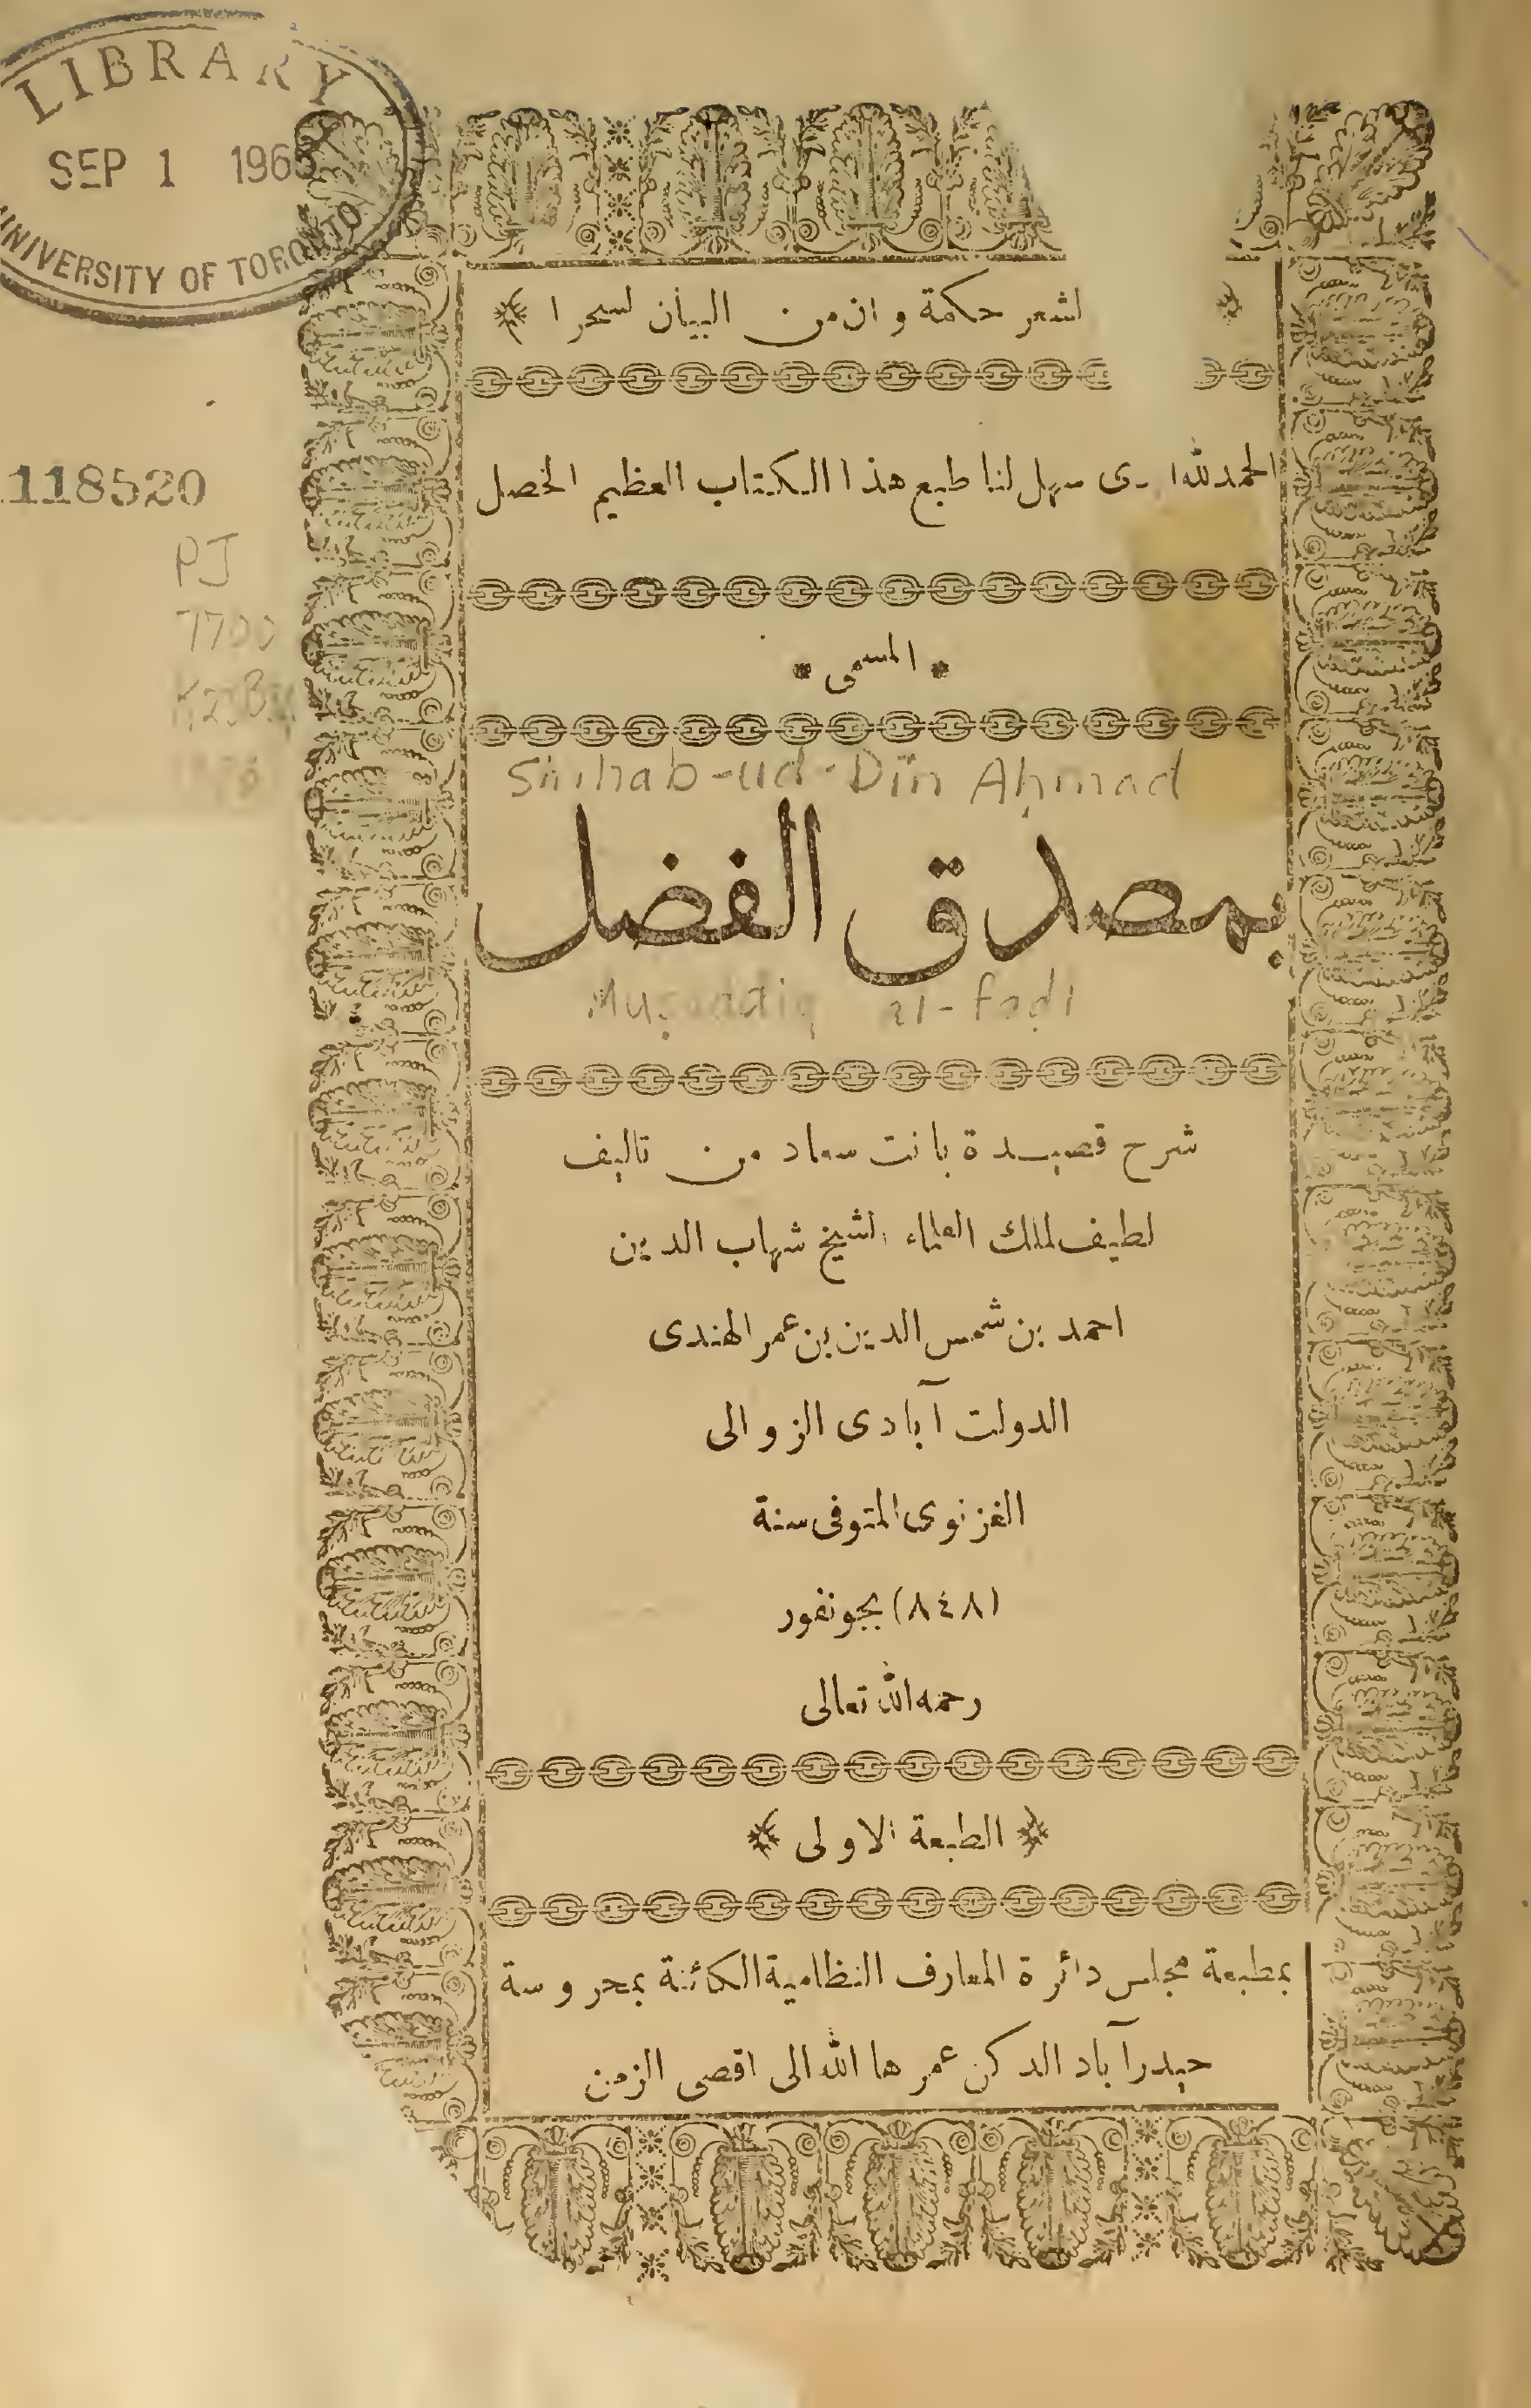 LIBRARY
SEP 1 196
UNIVERSITY OF TORONTO
118520
PJ
7700
لشعر حكمة و ان من البيان لسحرا
الحمد لله سهل لنا طبع هذا الكتاب العظيم الخصل
المسمى
Shihab-ud-Din Aḥmad
بمصدق الفضل
Muṣaddiq al-faḍl
شرح قصيدة بانت سعاد من تاليف
لطيف لملك العلماء الشيخ شهاب الدين
احمد بن شمس الدين بن عمر الهندى
الدولت آبادى الزوالى
الغزنوى المتوفى سنة
(٨٤٨) بجونفور
رحمه الله تعالى
الطبعة الاولى
بمطبعة مجلس دائرة المعارف النظامية الكائنة بمحروسة
حيدرآباد الدكن عمرها الله الى اقصى الزمن